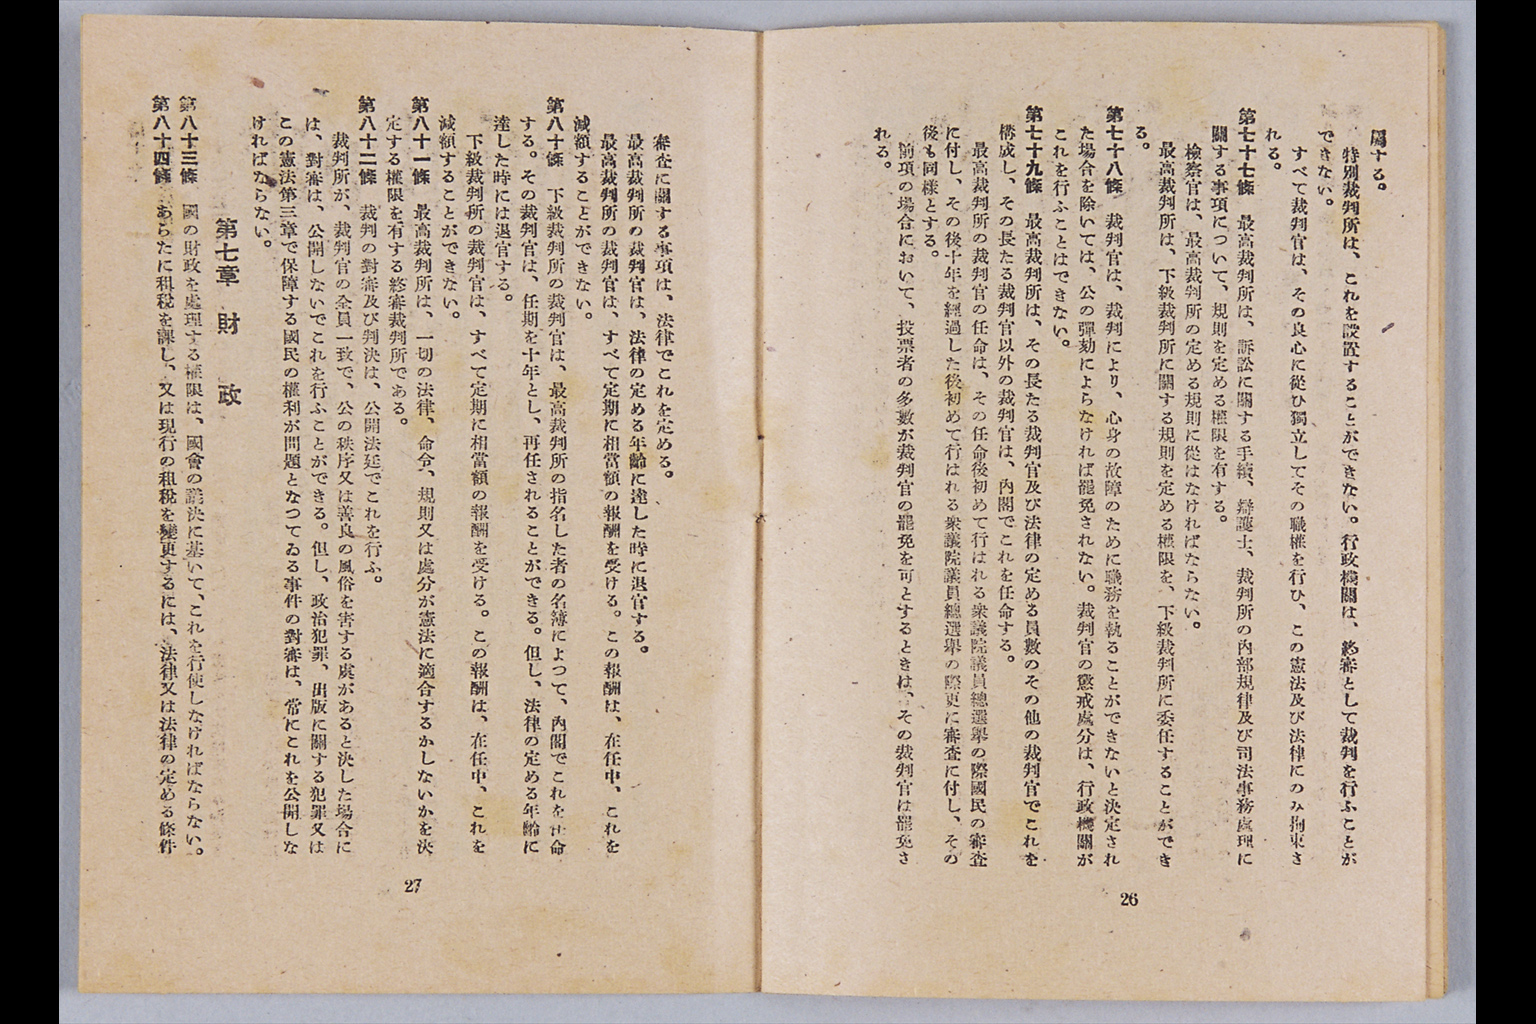 屬する。
特別裁判所は、これを設置することができない。行政機關は、終審として裁判を行ふことが
できない。
すべて裁判官は、その良心に從ひ獨立してその職權を行ひ、この憲法及び法律にのみ拘束さ
れる。
第七十七條　最高裁判所は、訴訟に關する手續、辯護士、裁判所の內部規律及び司法事務處理に
關する事項について、規則を定める權限を有する。
檢察官は、最高裁判所の定める規則に從はなければならない。
最高裁判所は、下級裁判所に關する規則を定める權限を、下級裁判所に委任することができ
る。
第七十八條　裁判官は、裁判により、心身の故障のために職務を執ることができないと決定され
た場合を除いては、公の彈劾によらなければ罷免されない。裁判官の懲戒處分は、行政機關が
これを行ふことはできない。
第七十九條　最高裁判所は、その長たる裁判官及び法律の定める員數のその他の裁判官でこれを
構成し、その長たる裁判官以外の裁判官は、內閣でこれを任命する。
最高裁判所の裁判官の任命は、その任命後初めて行はれる衆議院議員總選擧の際國民の審査
に付し、その後十年を經過した後初めて行はれる衆議院議員總選擧の際更に審査に付し、その
後も同樣とする。
前項の場合において、投票者の多數が裁判官の罷免を可とするときは、その裁判官は罷免さ
れる。
26
審査に關する事項は、法律でこれを定める。
最高裁判所の裁判官は、法律の定める年齡に達した時に退官する。
最高裁判所の裁判官は、すべて定期に相當額の報酬を受ける。この報酬は、在任中、これを
減額することができない。
第八十條　下級裁判所の裁判官は、最高裁判所の指名した者の名簿によつて、內閣でこれを任命
する。その裁判官は、任期を十年とし、再任されることができる。但し、法律の定める年齡に
達した時には退官する。
下級裁判所の裁判官は、すべて定期に相當額の報酬を受ける。この報酬は、在任中、これを
減額することができない。
第八十一條　最高裁判所は、一切の法律、命令、規則又は處分が憲法に適合するかしないかを決
定する權限を有する終審裁判所である。
第八十二條　裁判の對審及び判決は、公開法廷でこれを行ふ。
裁判所が、裁判官の全員一致で、公の秩序又は善良の風俗を害する虞があると決した場合に
は、對審は、公開しないでこれを行ふことができる。但し、政治犯罪、出版に關する犯罪又は
この憲法第三章で保障する國民の權利が問題となつてゐる事件の對審は、常にこれを公開しな
ければならない。
第七章　財　政
第八十三條　國の財政を處理する權限は、國會の議決に基いて、これを行使しなければならない。
第八十四條　あらたに租稅を課し、又は現行の租稅を變更するには、法律又は法律の定める條件
27